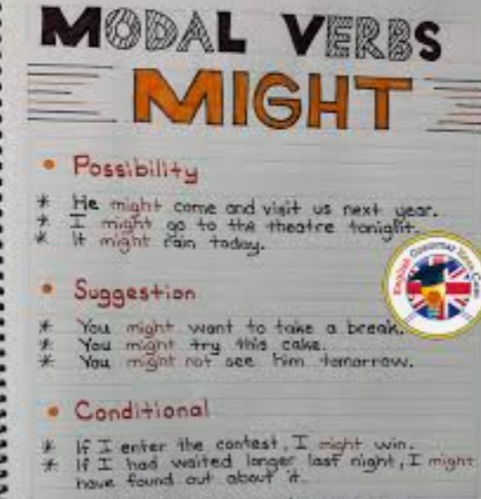 MODAL VERBS
MIGHT
• Possibility
* He might come and visit us next year.
* I might go to the theatre tonight.
* It might rain today.
• Suggestion
* You might want to take a break.
* You might try this cake.
* You might not see him tomorrow.
• Conditional
* If I enter the contest, I might win.
* If I had waited longer last night, I might
have found out about it.
English Grammar